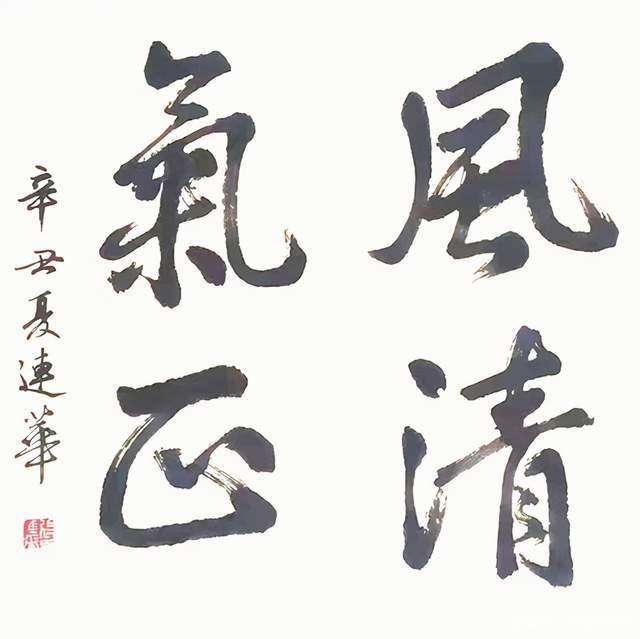 風清
氣正
辛丑夏連華